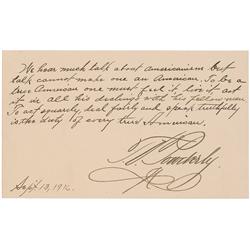 We hear much talk about Americanism but
talk cannot make one an American. To be a
true American one must feel it live it, act
it in all his dealings with his fellow man
To act squarely, deal fairly and speak truthfully
is the duty of every true American.
T. V. Powderly
Sept. 13, 1916.